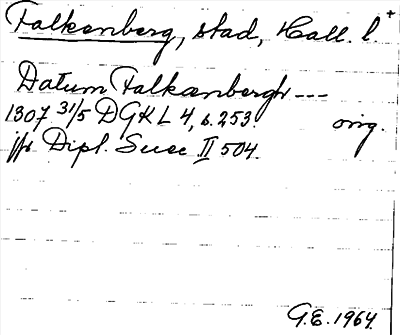 Falkenberg, stad, Hall. l. +
Datum Falkænbergh ---
1307 31/5 DGK L 4, s. 253. orig.
jfr Dipl. Suec II 504.
G.E. 1964.